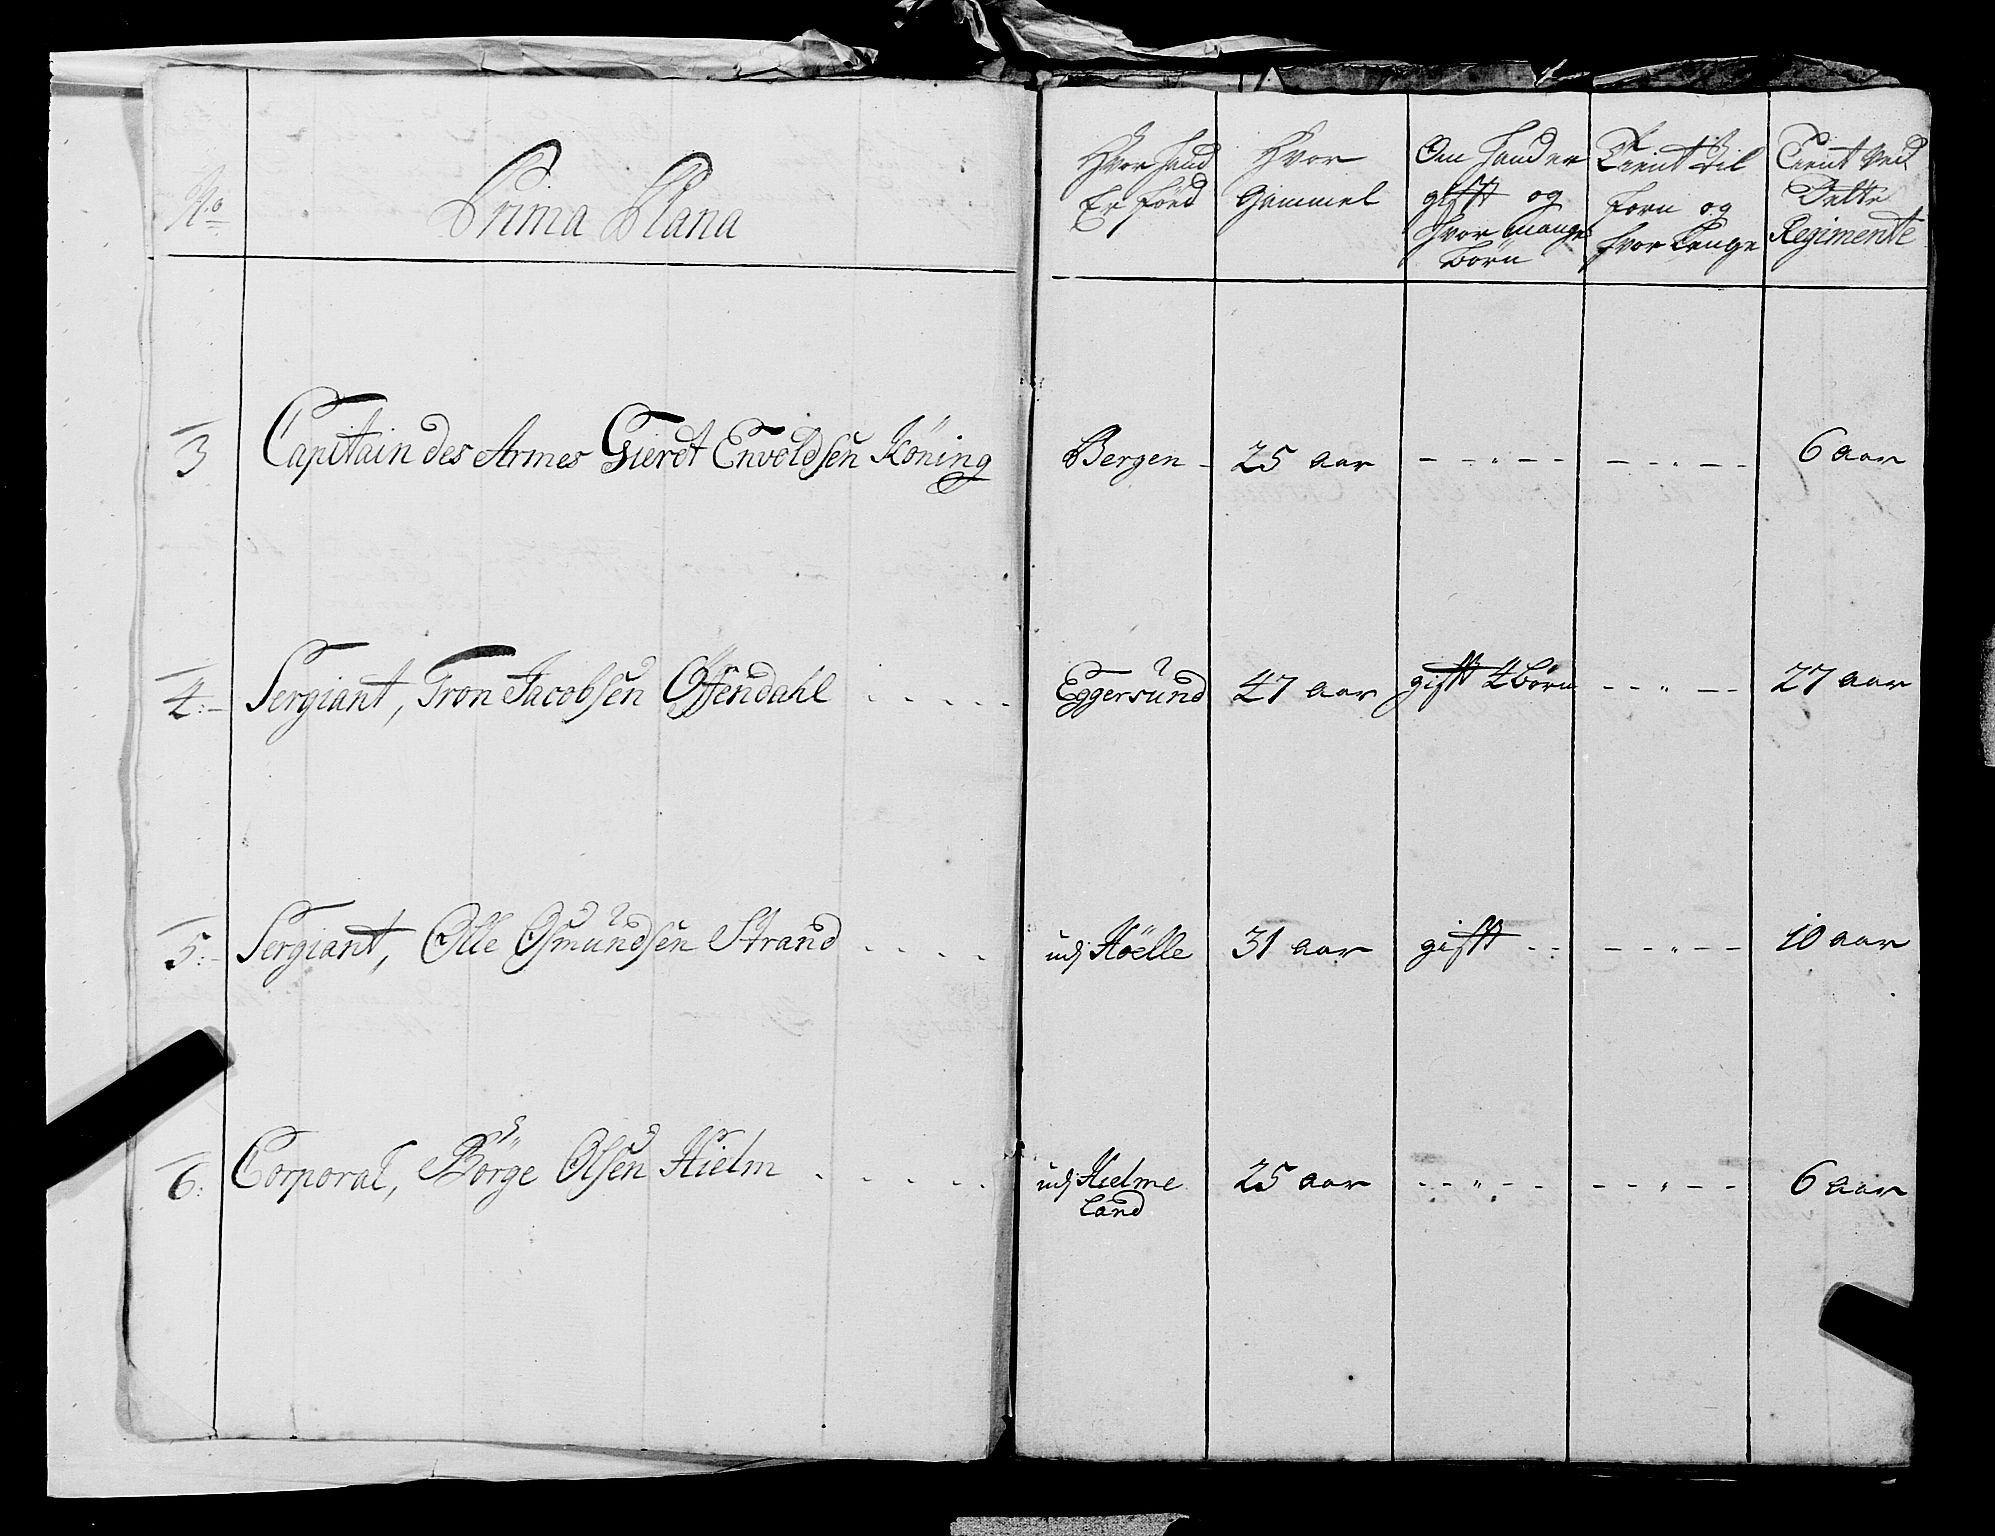 No Prima Plana
Hvor hand Er föed
Hvor Gammel
Om hand er gifft og hvor mange Börn
Tient til forn og hvor Lenge
Tient ved Dette Regimente
3 Capitain des Armes Gierdt Envoldsen Köning Bergen 25 aar 6 aar
4 Sergiant, Tron Jacobsen Offendahl Eggersund 47 aar gifft 4 Börn 27 aar
5 Sergiant, Olle Osmundsen Strand udj Höelle 31 aar gifft 10 aar
6 Corporal, Börge Olsen Hielm udj Hielme 25 aar 6 aar
Land